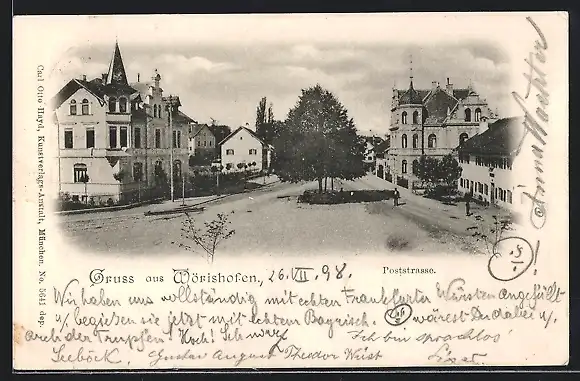 Carl Otto Hayd, Kunstverlags-Anstalt, München. No. 5641 dep.
Anna
Gruss aus Wörishofen, 26.VII.98.
Poststrasse.
Wir haben uns vollständig mit echten Frankfurter Würsten angefüllt
u/ begiesen sie jetzt mit echtem Bayrisch. wärest Du dabei u/
auch der Hoch! Schwarz Ich bin sprachlos
Seeböck, Gustav August Theodor Wüst